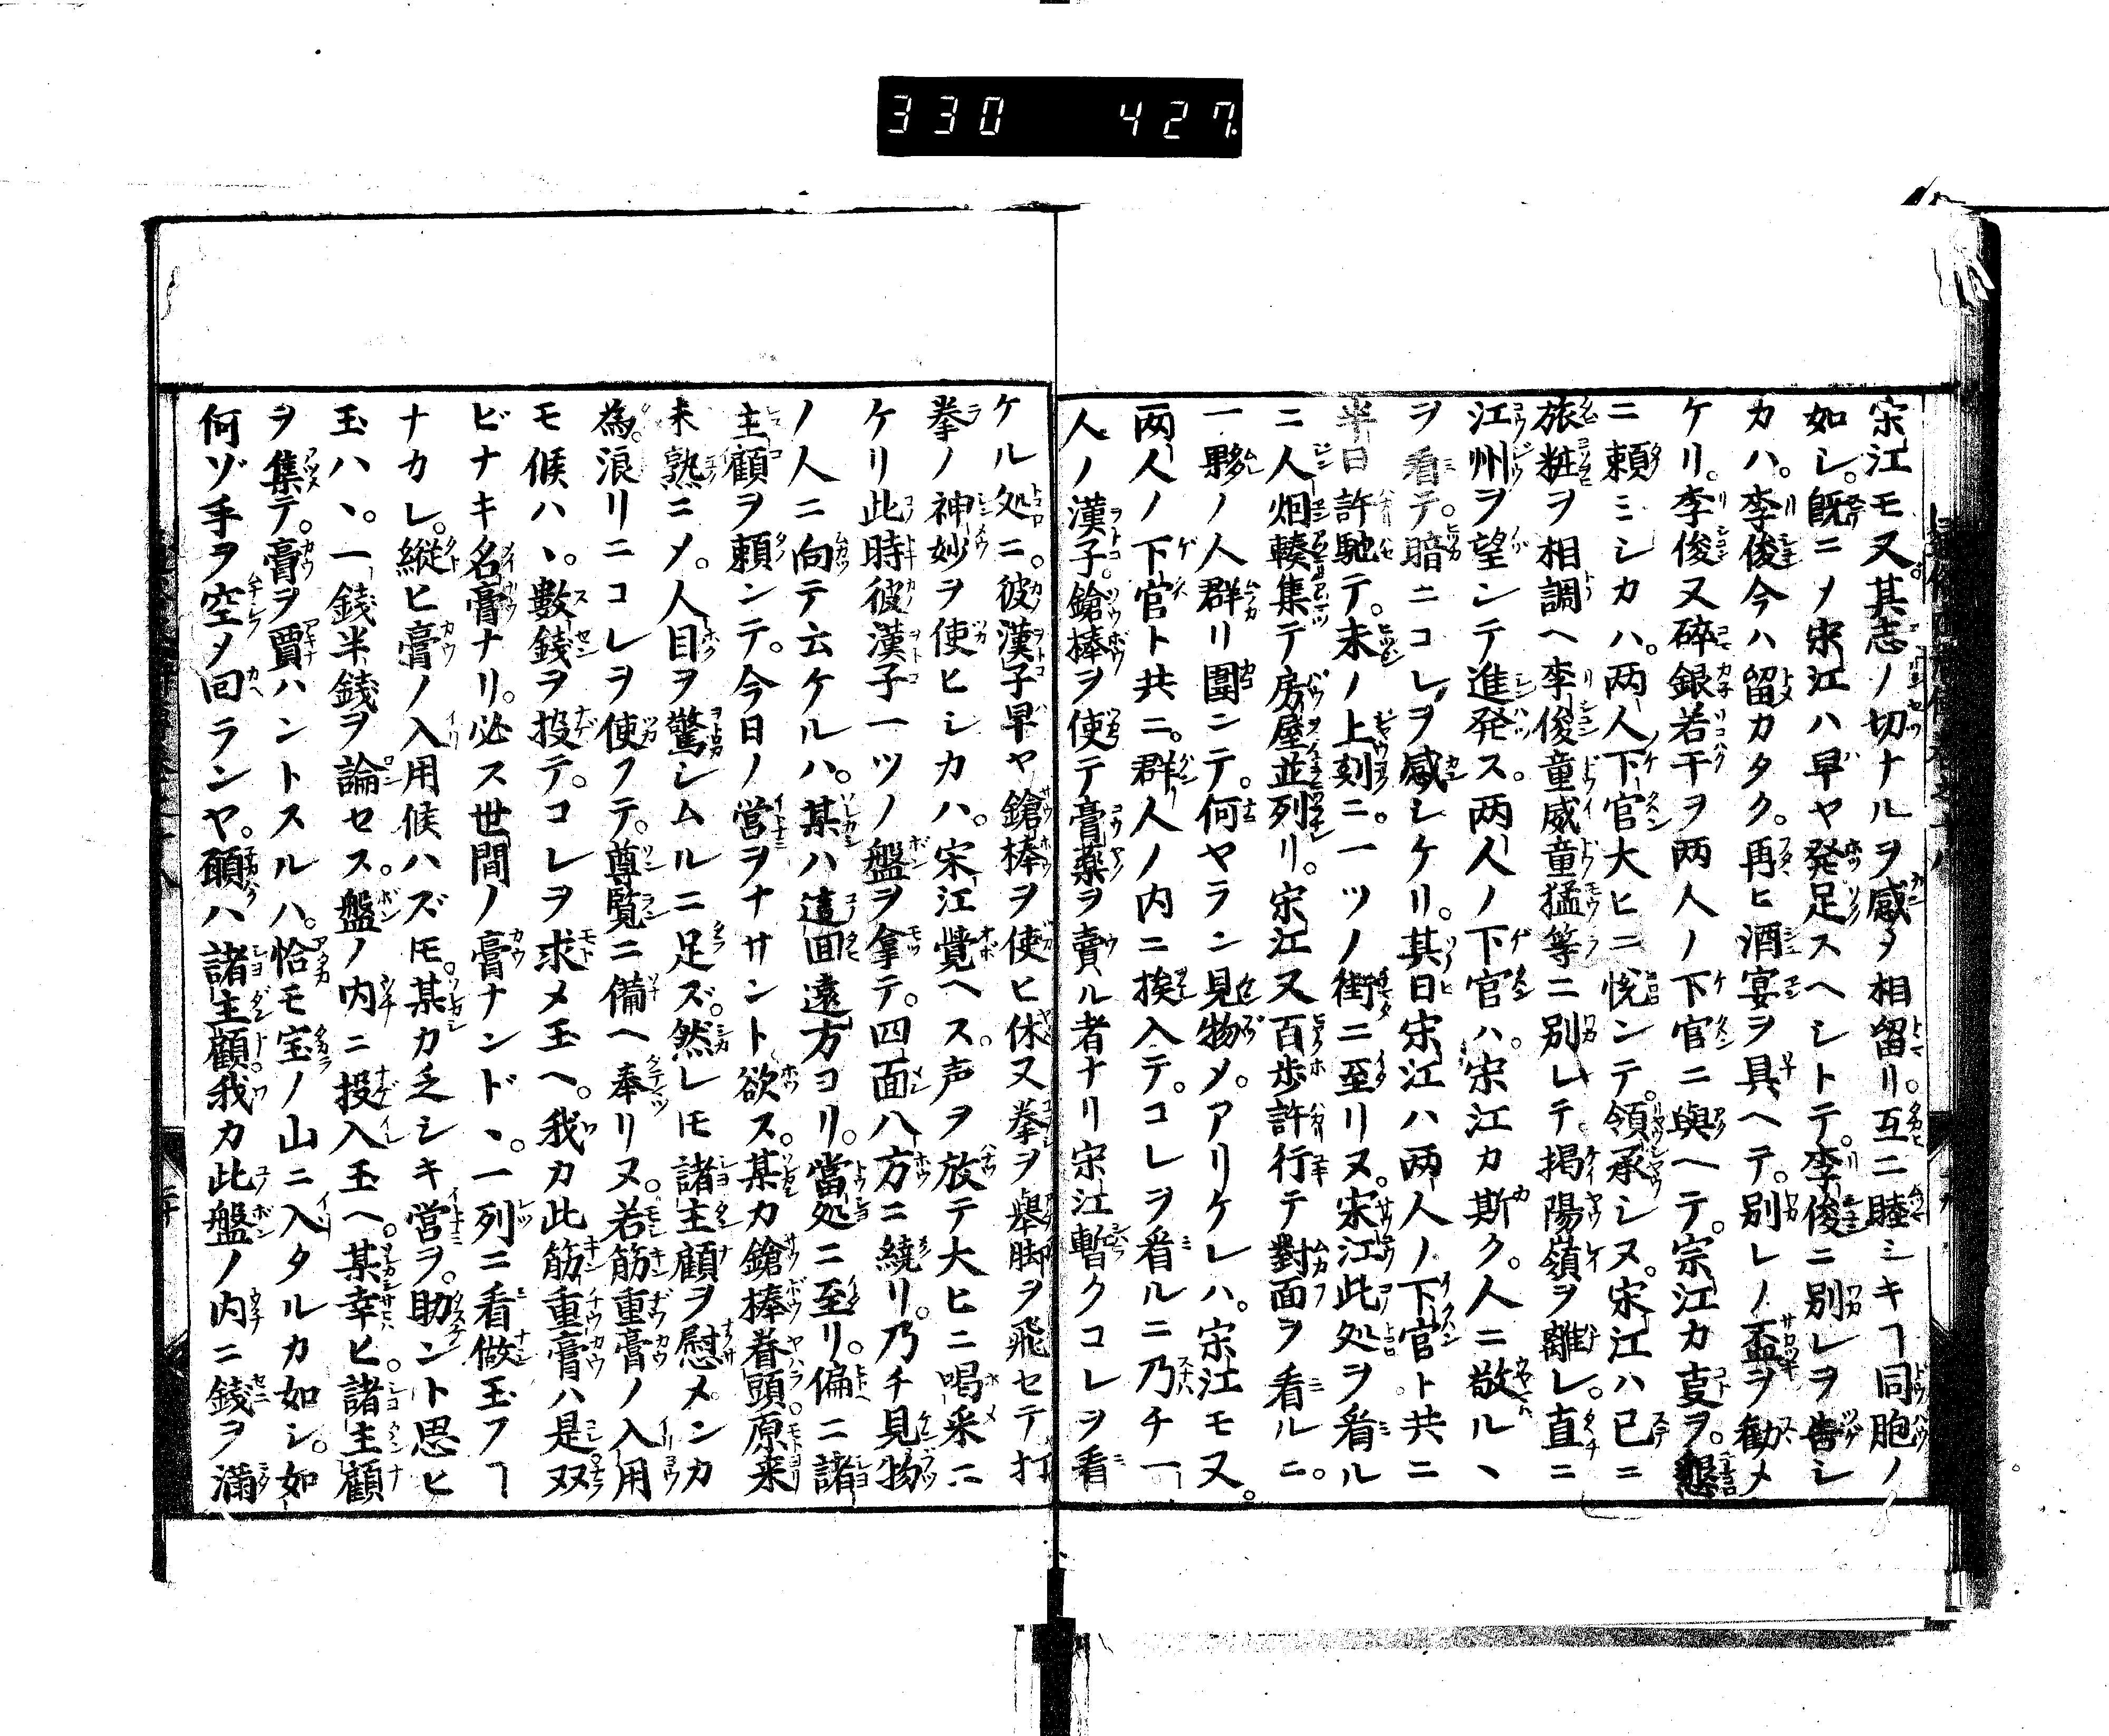 330 427
宋江モ又。其志ノ切ナルヲ感タ相留リ。互ニ睦シキヿ同胞ノ
如シ。既ニノ宋江ハ早ヤ発足スヘシトテ。李俊ニ別レヲ告シ
カハ。李俊今ハ留カタク。再ヒ酒宴ヲ具ヘテ。別レノ盃ヲ勧メ
ケリ。李俊又碎銀若干ヲ両人ノ下官ニ與ヘテ。宗江カ叓ヲ。懇
ニ頼ミシカハ。両人下官大ヒニ悦ンテ。領承シヌ。宋江ハ已ニ
旅粧ヲ相調ヘ李俊童威童猛等ニ別レテ掲陽嶺ヲ離レ。直ニ
江州ヲ望ンテ進発ス。両人ノ下官ハ。宋江カ斯ク。人ニ敬ルヽ
ヲ看テ。暗ニコレヲ感シケリ。其日宋江ハ両人ノ下官ト共ニ
半日許馳テ。未ノ上刻ニ。一ツノ街ニ至リヌ。宋江此処ヲ看ル
ニ人烟輳集テ房屋並列リ。宋江又百歩許行テ對面ヲ看ルニ。
一夥ノ人群リ圍ンテ。何ヤラン見物メ。アリケレハ。宋江モ又。
両人ノ下官ト共ニ。群人ノ内ニ挨入テ。コレヲ看ルニ乃チ一
人ノ漢子。鎗棒ヲ使テ膏薬ヲ賣ル者ナリ宋江暫クコレヲ看
ケル処ニ。彼漢子早ヤ鎗棒ヲ使ヒ休又拳ヲ舉脚ヲ飛セテ打
拳ノ神妙ヲ使ヒシカハ。宋江覺ヘス。声ヲ放テ大ヒニ喝采ニ
ケリ此時彼漢子一ツノ盤ヲ拿テ。四面八方ニ繞リ。乃チ見物
ノ人ニ向テ云ケルハ。某ハ這回遠方ヨリ。當処ニ至リ。偏ニ諸
主顧ヲ頼ンテ。今日ノ営ヲナサント欲ス。某カ鎗棒眷頭原来
未熟ニメ。人目ヲ驚シムルニ足ズ。然レモ諸主顧ヲ慰メンカ
為。浪リニコレヲ使フテ。尊覧ニ備ヘ奉リヌ。若筋重膏ノ入用
モ候ハヽ。數銭ヲ投テ。コレヲ求メ玉ヘ。我カ此筋重膏ハ是双
ビナキ名膏ナリ。必ス世間ノ膏ナンドヽ。一列ニ看做玉フヿ
ナカレ。縦ヒ膏ノ入用候ハズモ。某カ乏シキ営ヲ。助ント思ヒ
玉ハヽ。一銭半銭ヲ論セス。盤ノ内ニ投入玉ヘ。某幸ヒ。諸主顧
ヲ集テ。膏ヲ賈ハントスルハ。恰モ宝ノ山ニ入タルカ如シ。如
何ゾ手ヲ空メ回ランヤ。願ハ諸主顧我カ此盤ノ内ニ銭ヲ満